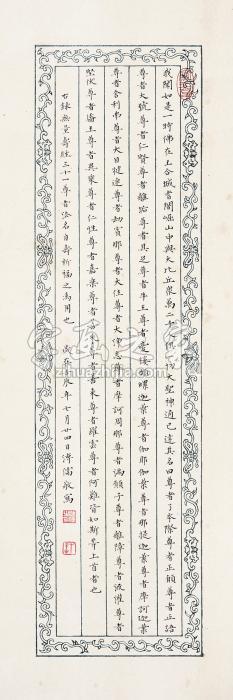 我聞如是一時佛在王舍城耆闍崛山中與大比丘眾萬二千人俱一切大聖神通已達其名曰尊者了本際尊者正願尊者正語
尊者大號尊者仁賢尊者離垢尊者具足尊者牛王尊者優樓頻螺迦葉尊者伽耶迦葉尊者那提迦葉尊者摩訶迦葉
尊者舍利弗尊者大目揵連尊者劫賓那尊者大住尊者大淨志尊者摩訶周那尊者滿願子尊者離障尊者流灌尊者
堅伏尊者面王尊者異乘尊者仁性尊者嘉樂尊者善來尊者羅雲尊者阿難皆如斯等上首者也
右錄無量壽經三十一尊者名自壽祈福之用也 辰年七月廿四日溥儒敬寫